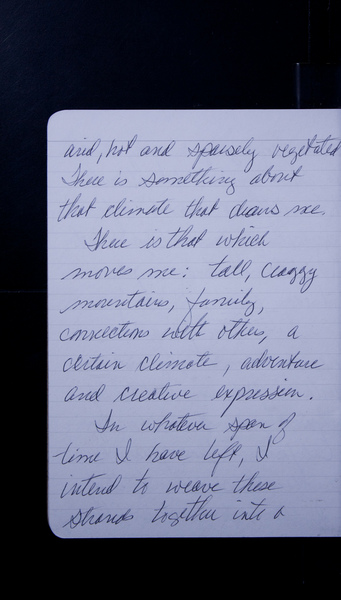 arid, hot and sparsely vegetated
There is something about
that climate that draws me.
There is that which
moves me: tall, craggy
mountains, family,
connections with others, a
certain climate, adventure
and creative expression.
In whatever span of
time I have left, I
intend to weave these
strands together into a